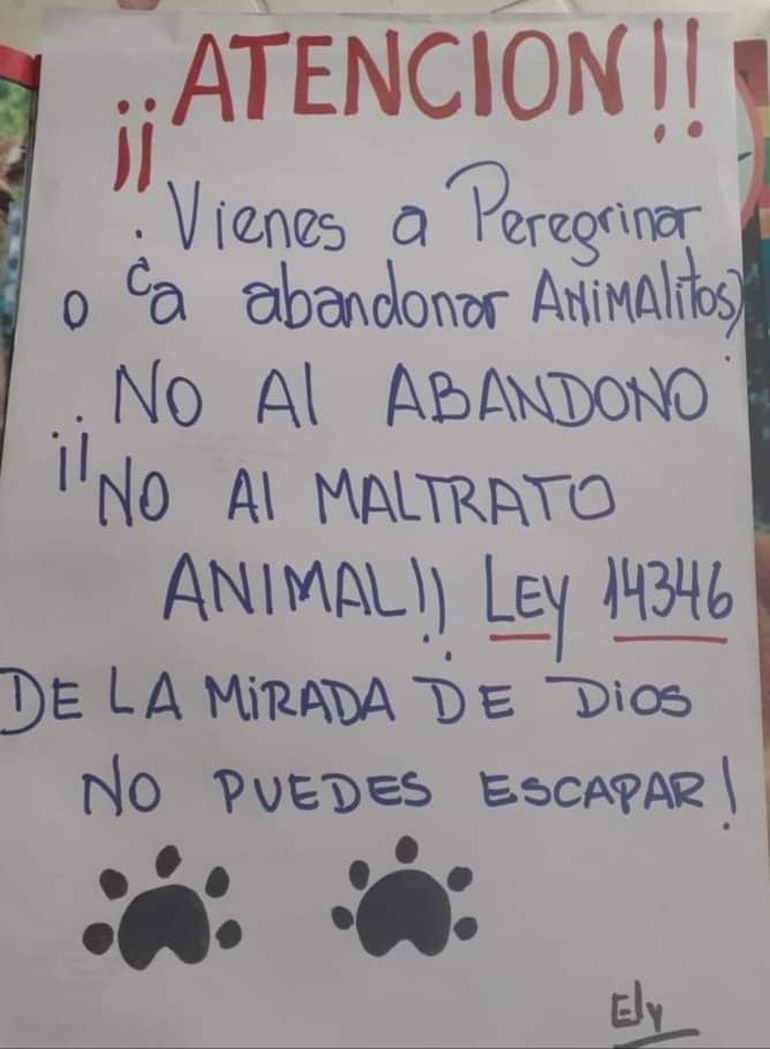 ¡¡ATENCION!!
. Vienes a Peregrinar
o ca abandonar ANiMAlitos?
. NO Al ABANDONO
¡¡NO Al MALTRATO
ANIMAL!! LEy 14346
DE LA MiRADA DE Dios
NO PUEDES ESCAPAR!
Ely